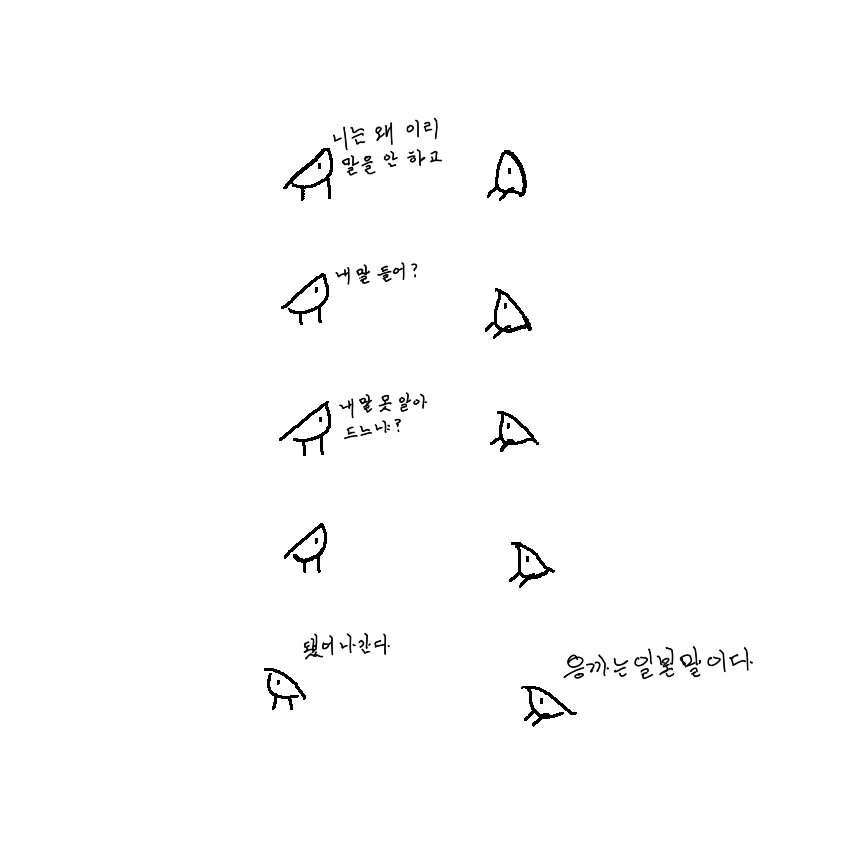 니는 왜 이리
말을 안 하고
내 말 들어?
내 말 못 알아
드느냐?
됐어 나 간다.
응까는 일본말이다.